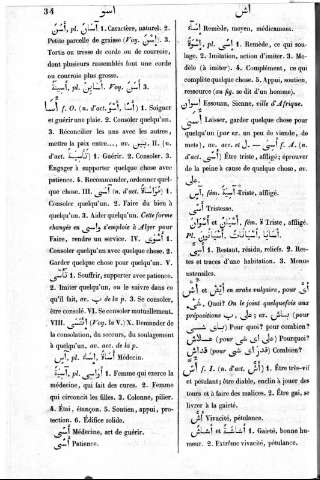 34
اسو
اش
أَسَنٌ, pl. آسَانٌ. Caractère, naturel. 2.
Petite parcelle de graisse (Voy. أُسُنٌ). 3.
Tortis ou tresse de corde ou de courroie,
dont plusieurs rassemblés font une corde
ou courroie plus grosse.
pl. أَسَايِنُ. Voy. 3.
أَسَا f. O. (n. d'act. أَسْوٌ, أَسًا) 1. Soigner
et guérir une plaie. 2. Consoler quelqu'un.
3. Réconcilier les uns avec les autres,
mettre la paix entre..., av. بين. II. (n.
d'act. تَأْسِيَةٌ) 1. Guérir. 2. Consoler. 3.
Engager à supporter quelque chose avec
patience. 4. Recommander, ordonner quel-
que chose. III. آسَى (n. d'act. مُوَاسَاةٌ) 1.
Consoler quelqu'un. 2. Faire du bien à
quelqu'un. 3. Aider quelqu'un. Cette forme
changée en وَاسَى s'emploie à Alger pour
Faire, rendre un service. IV. آسَى 1.
Consoler quelqu'un avec quelque chose. 2.
Garder quelque chose pour quelqu'un. V.
تَأَسَّى 1. Souffrir, supporter avec patience.
2. Imiter quelqu'un, ou le suivre dans ce
qu'il fait, av. ب de la p. 3. Se consoler,
être consolé. VI. Se consoler mutuellement.
VIII. اِئْتَسَى (Voy. la V.) X. Demander de
la consolation, du secours, du soulagement
à quelqu'un, av. acc. de la p.
آسٍ, pl. أُسَاةٌ, إِسَاءٌ Médecin.
آسِيَةٌ, pl. أَوَاسِي 1. Femme qui exerce la
médecine, qui fait des cures. 2. Femme
qui circoncit les filles. 3. Colonne, pilier.
4. Étai, étançon. 5. Soutien, appui, pro-
tection. 6. Édifice solide.
Médecine, art de guérir.
أُسًى Patience.
Remède, moyen, médicament.
أُسْوَةٌ, pl. أُسًى 1. Remède, ce qui sou-
lage. 2. Imitation, action d'imiter. 3. Mo-
dèle (à imiter). 4. Complément, ce qui
complète quelque chose. 5. Appui, soutien,
ressource (au fig. se dit d'un homme).
أسوان Essouan, Sienne, ville d'Afrique.
أَسَى Laisser, garder quelque chose pour
quelqu'un (par ex. un peu de viande, de
mets), av. acc. et ل. — أَسِيَ f. A. (n.
d'act. أَسًى) Être triste, affligé; éprouver
de la peine à cause de quelque chose, av.
على.
آسٍ, fém. آسِيَةٌ Triste, affligé.
أَسًى Tristesse.
أَسْوَانُ et أَسْيَانُ, fém. ة Triste, affligé.
Pl.
1. Restant, résidu, reliefs. 2. Res-
tes et traces d'une habitation. 3. Menus
ustensiles.
أَشْ et أَيْش en arabe vulgaire, pour أي
شيء, Quoi? On le joint quelquefois aux
prépositions ب, على, av. باش (pour
بأى شى) Pour quoi? pour combien?
علاش (pour على أى شى) Pourquoi?
قداش (pour قدر أى شى) Combien?
أَشَّ f. I. (n. d'act. أَشٌّ) 1. Être très-vif
et pétulant; être diable, enclin à jouer des
tours et à faire des malices. 2. Être gai, se
livrer à la gaieté.
أَشٌّ Vivacité, pétulance.
أَشَاشٌ et أَشَاشَةٌ 1. Gaieté, bonne hu-
meur. 2. Extrême vivacité, pétulance.